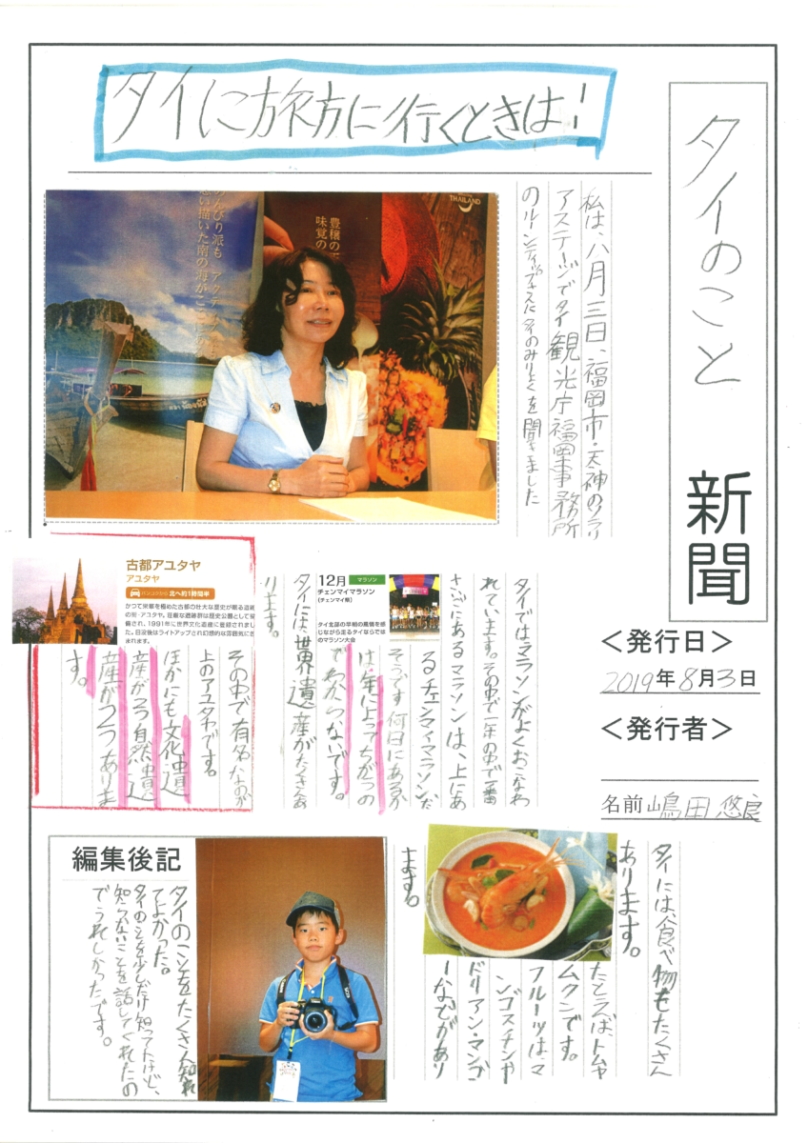 タイに旅行に行くときは!
タイのこと
新聞
<発行日>
2019年8月3日
<発行者>
名前 嶋田 悠良
私は、八月三日、福岡市・天神のソラリ
アステージでタイ観光庁福岡事務所
を聞きました
THAILAND
んびり派も、アクティブ
思い描いた南の海がここに
味覚の
タイではマラソンがよくおこなわ
れています。その中で一年の中で一番
さいごにあるマラソンは、上にあ
るチェンマイマラソンだ
そうです。何日にあるか
は年によってちがうの
でわからないです。
12月
マラソン
チェンマイマラソン
(チェンマイ県)
タイ北部の早朝の風景を感
じながら走るタイならでは
のマラソン大会
タイには、世界遺産がたくさんあ
ります。
古都アユタヤ
アユタヤ
北へ約1時間半
かつて栄華を極めた古都の壮大な歴史が眠る遺跡
の街・アユタヤ。
その中で有名なのが
上のアユタヤです。
ほかにも文化遺
産が3つ自然遺
産が2つありま
す。
タイには、食べ物もたくさん
あります。
たとえばトムヤ
ムクンです。
フルーツは、マ
ンゴスチンや
ドリアン・マンゴ
ーなどがあり
ます。
編集後記
タイのことをたくさん知れ
てよかった。
タイのことを少しだけ知ってたけど、
知らないことを話してくれたの
でうれしかったです。